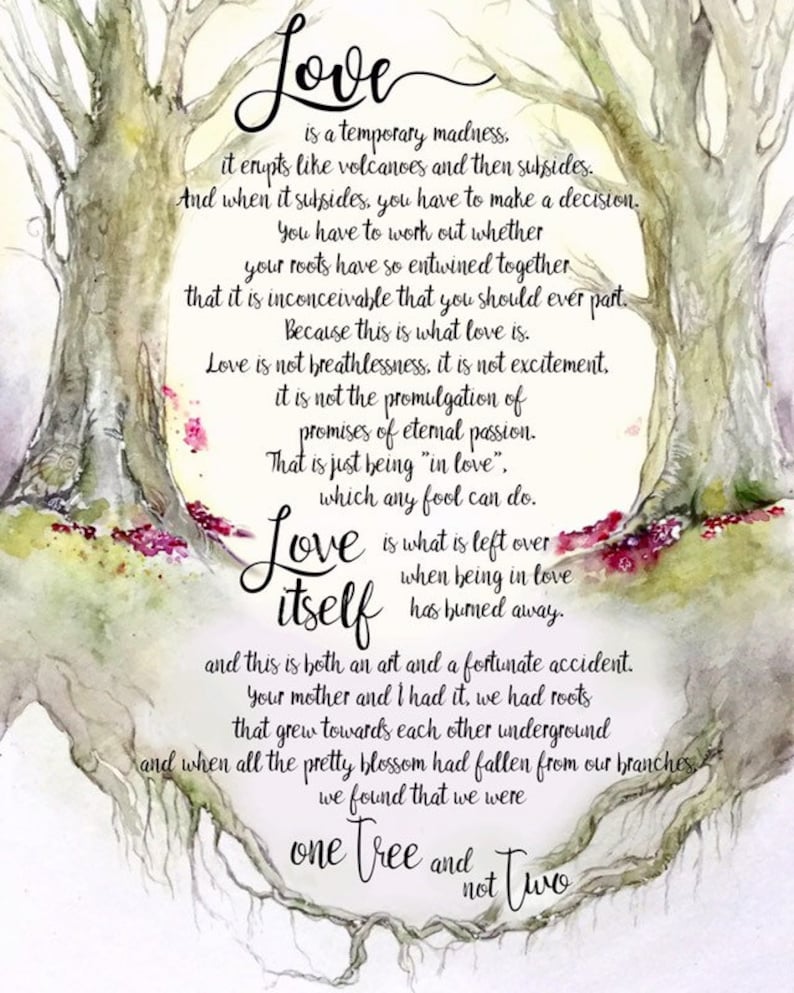 Love
is a temporary madness,
it erupts like volcanoes and then subsides.
And when it subsides, you have to make a decision.
You have to work out whether
your roots have so entwined together
that it is inconceivable that you should ever part.
Because this is what love is.
Love is not breathlessness, it is not excitement,
it is not the promulgation of
promises of eternal passion.
That is just being "in love",
which any fool can do.
Love itself
is what is left over
when being in love
has burned away.
and this is both an art and a fortunate accident.
Your mother and I had it, we had roots
that grew towards each other underground
and when all the pretty blossom had fallen from our branches,
we found that we were
one Tree and
not Two